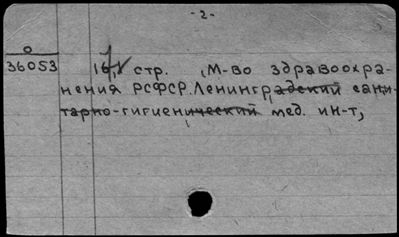 -2-
0
36053
16, стр. М-во здравоохра-
нения РСФСР. Ленинградский сани-
тарно-гигиенический мед. ин-т,